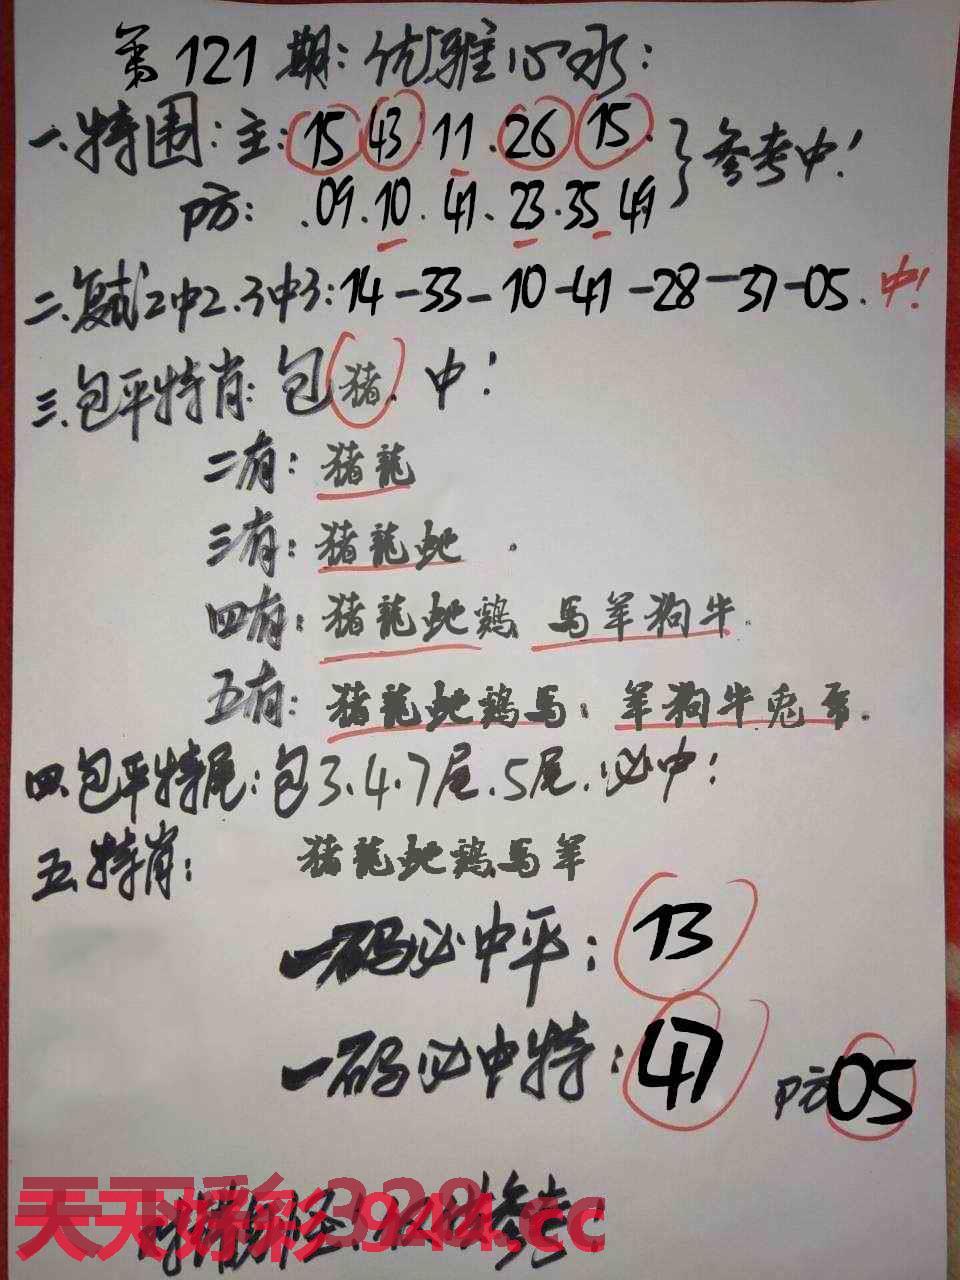 第121期：优雅心水：
一.特围：主：15 43 11.26 15.
防：.09.10.41.23.35 49
}参考中！
二.复式2中2.3中3：14-33-10-41-28-37-05.中！
三.包平特肖：包猪.中！
二有：猪龍
三有：猪龍虵.
四有：猪龍虵鷄 馬羊狗牛.
五有：猪龍虵鷄馬：羊狗牛兎
四.包平特尾：包3.4.7尾.5尾.必中！
五.特肖：猪龍虵鷄馬羊
一码必中平：13
一码必中特：47 防05
参考
天天好彩
944.cc